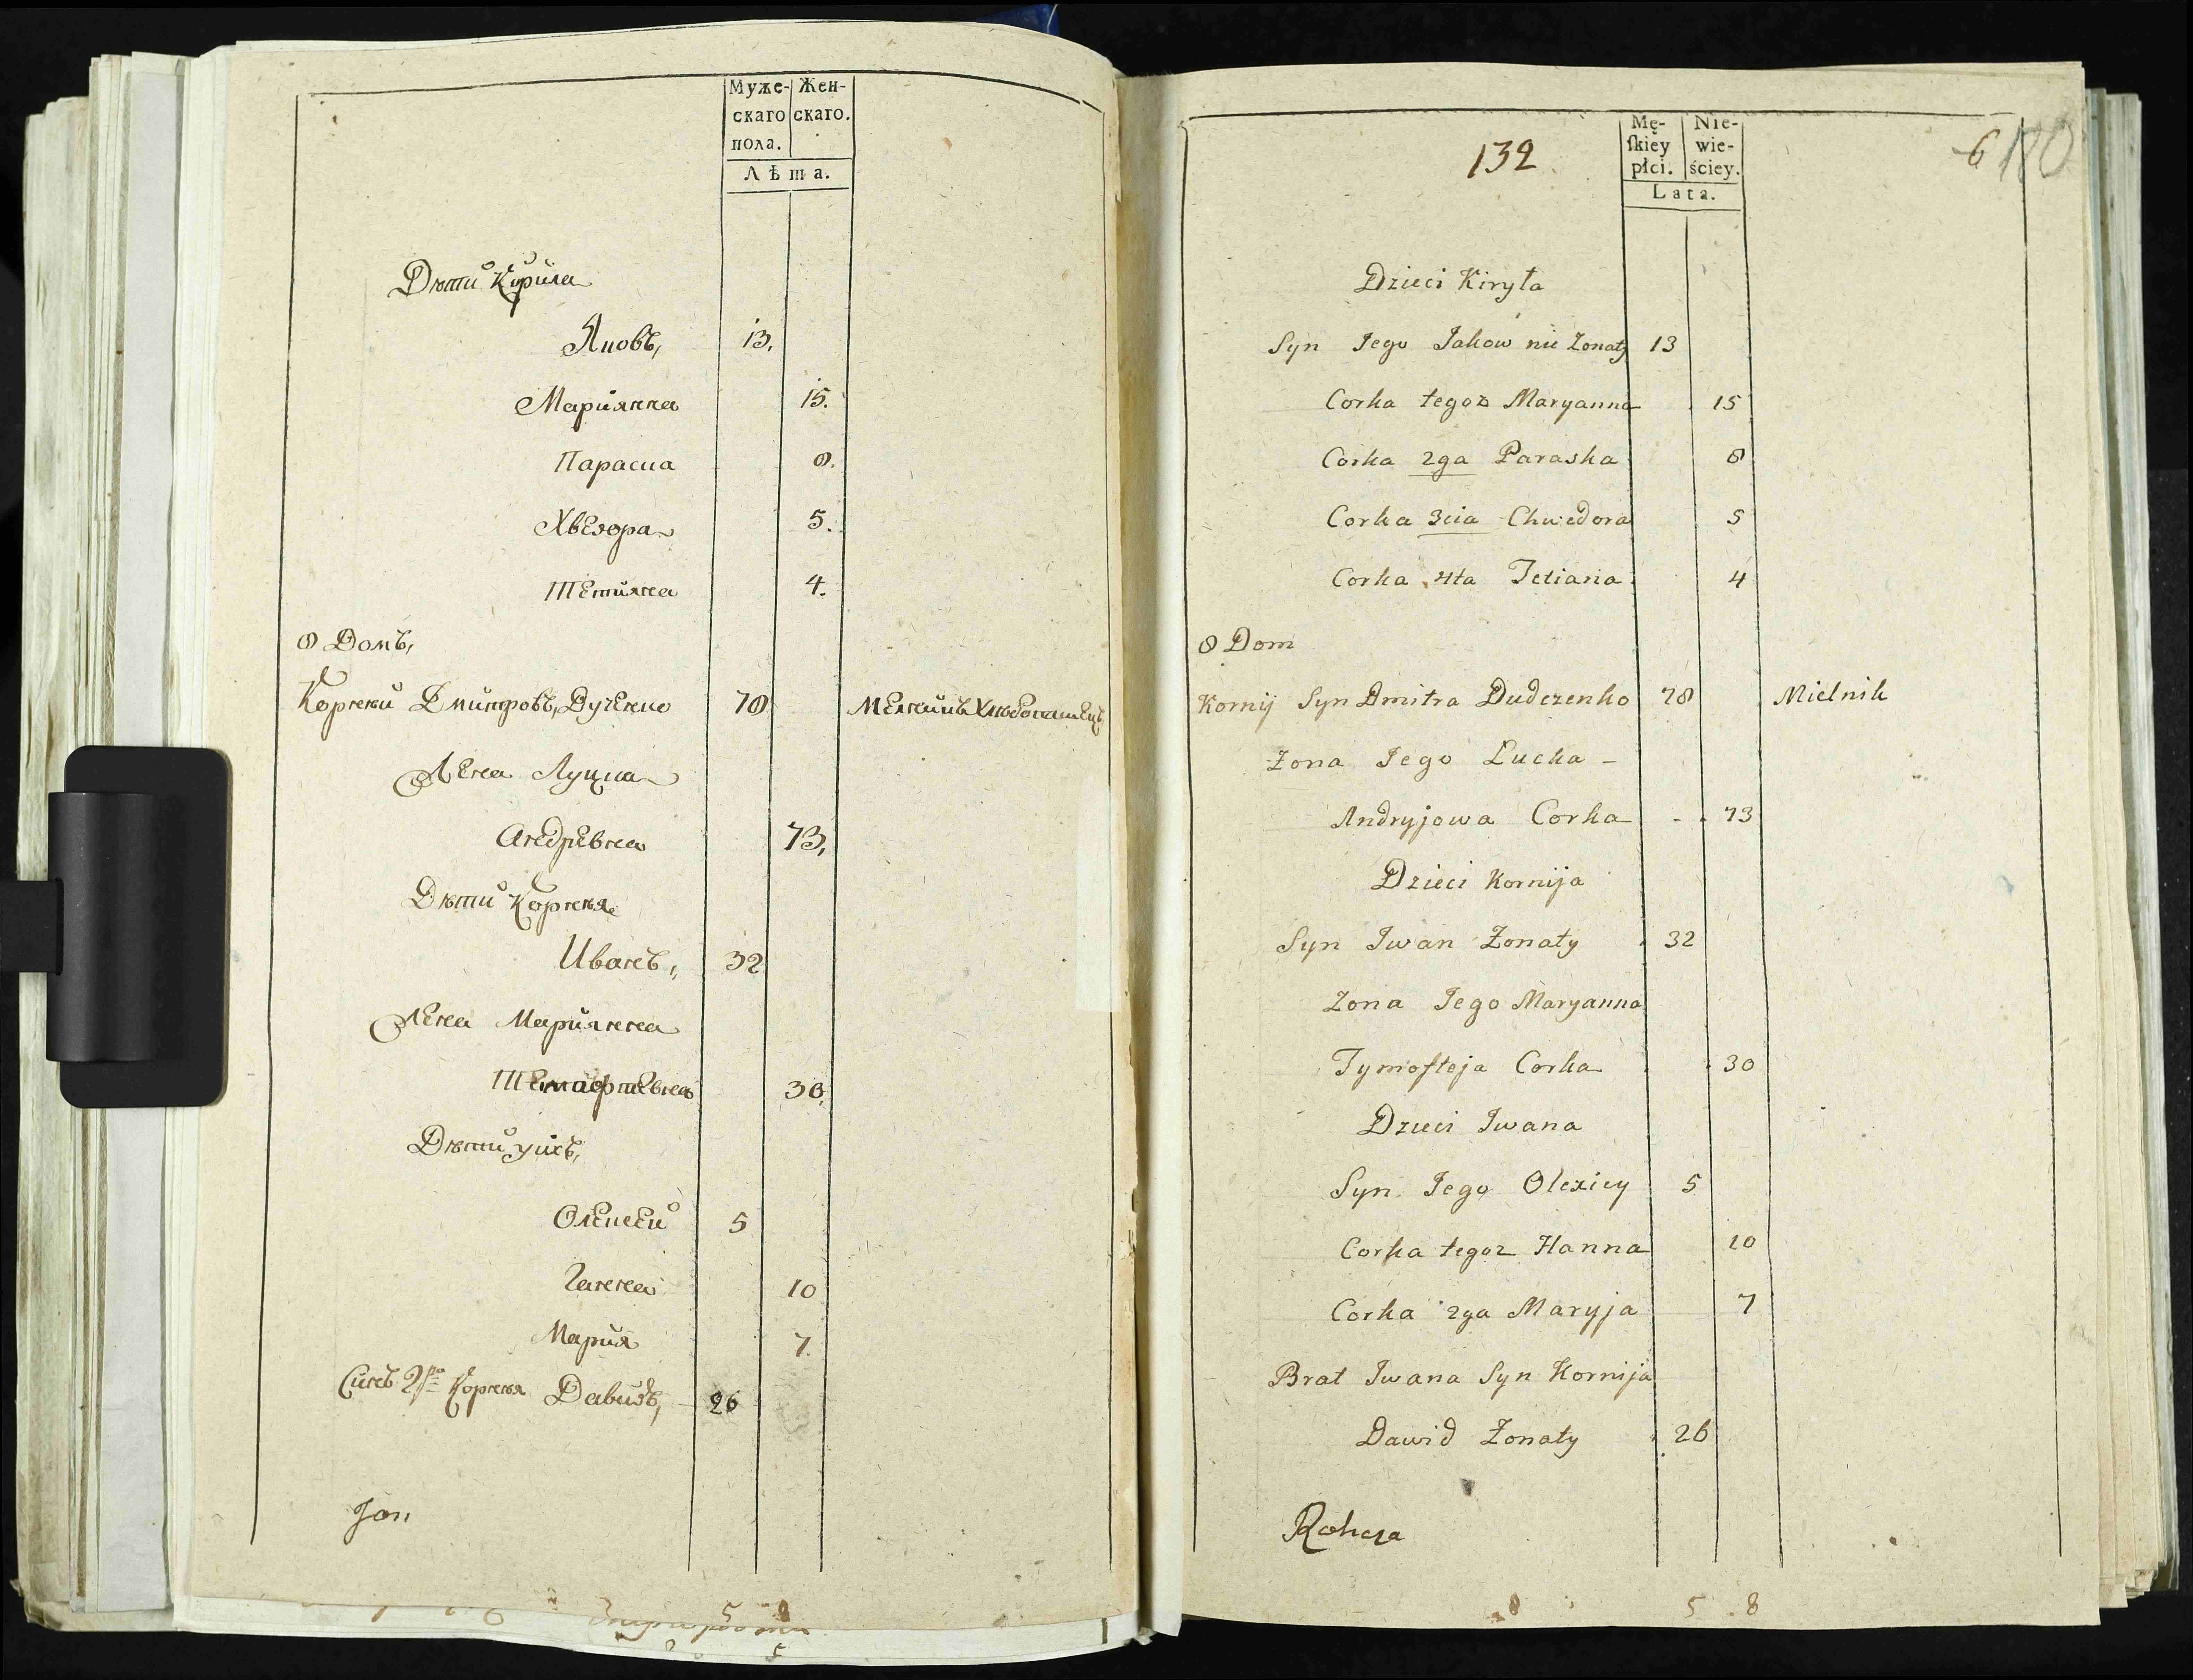 Муже- Жен-
скаго скаго.
пола.
Лѣта.
Дѣти Кирила
Яковъ, 13,
Мариянна 15.
Параска 8.
Хведора 5.
Тетияна 4.
8 Домъ,
Корнѣй Дмитровъ, Дученко 78 Мелникъ Хлѣбопашецъ
Жена Луцка
Андрѣевна 73,
Дѣти Корнѣя
Иванъ, 32
Жена Мариянна
Темофтѣевна 30,
Дѣти ухъ,
Олексеѣй 5
Ганна 10
Мария 7.
Синъ 2й Корнѣя Давидъ, 26
Jon
5 8
132
6 180
Mę- Nie-
ſkiey wie-
płci. ściey.
Lata.
Dzieci Kiryła
Syn Jego Jakow nie Zonaty 13
Corka tegoz Maryanna 15
Corka 2ga Paraska 8
Corka 3cia Chwedora 5
Corka 4ta Tetiana 4
8 Dom
Kornij Syn Dmitra Dudczenko 78 Mielnik
Żona Jego Lucka -
Andryjowa Corka - . 73
Dzieci Kornija
Syn Iwan Żonaty 32
Zona Jego Maryanna
Tymofteja Corka 30
Dzieci Iwana
Syn Jego Olexiey 5
Corka tegoz Hanna 10
Corka 2ga Maryja 7
Brat Iwana Syn Kornija
Dawid Żonaty 26
Rohcza
5 8